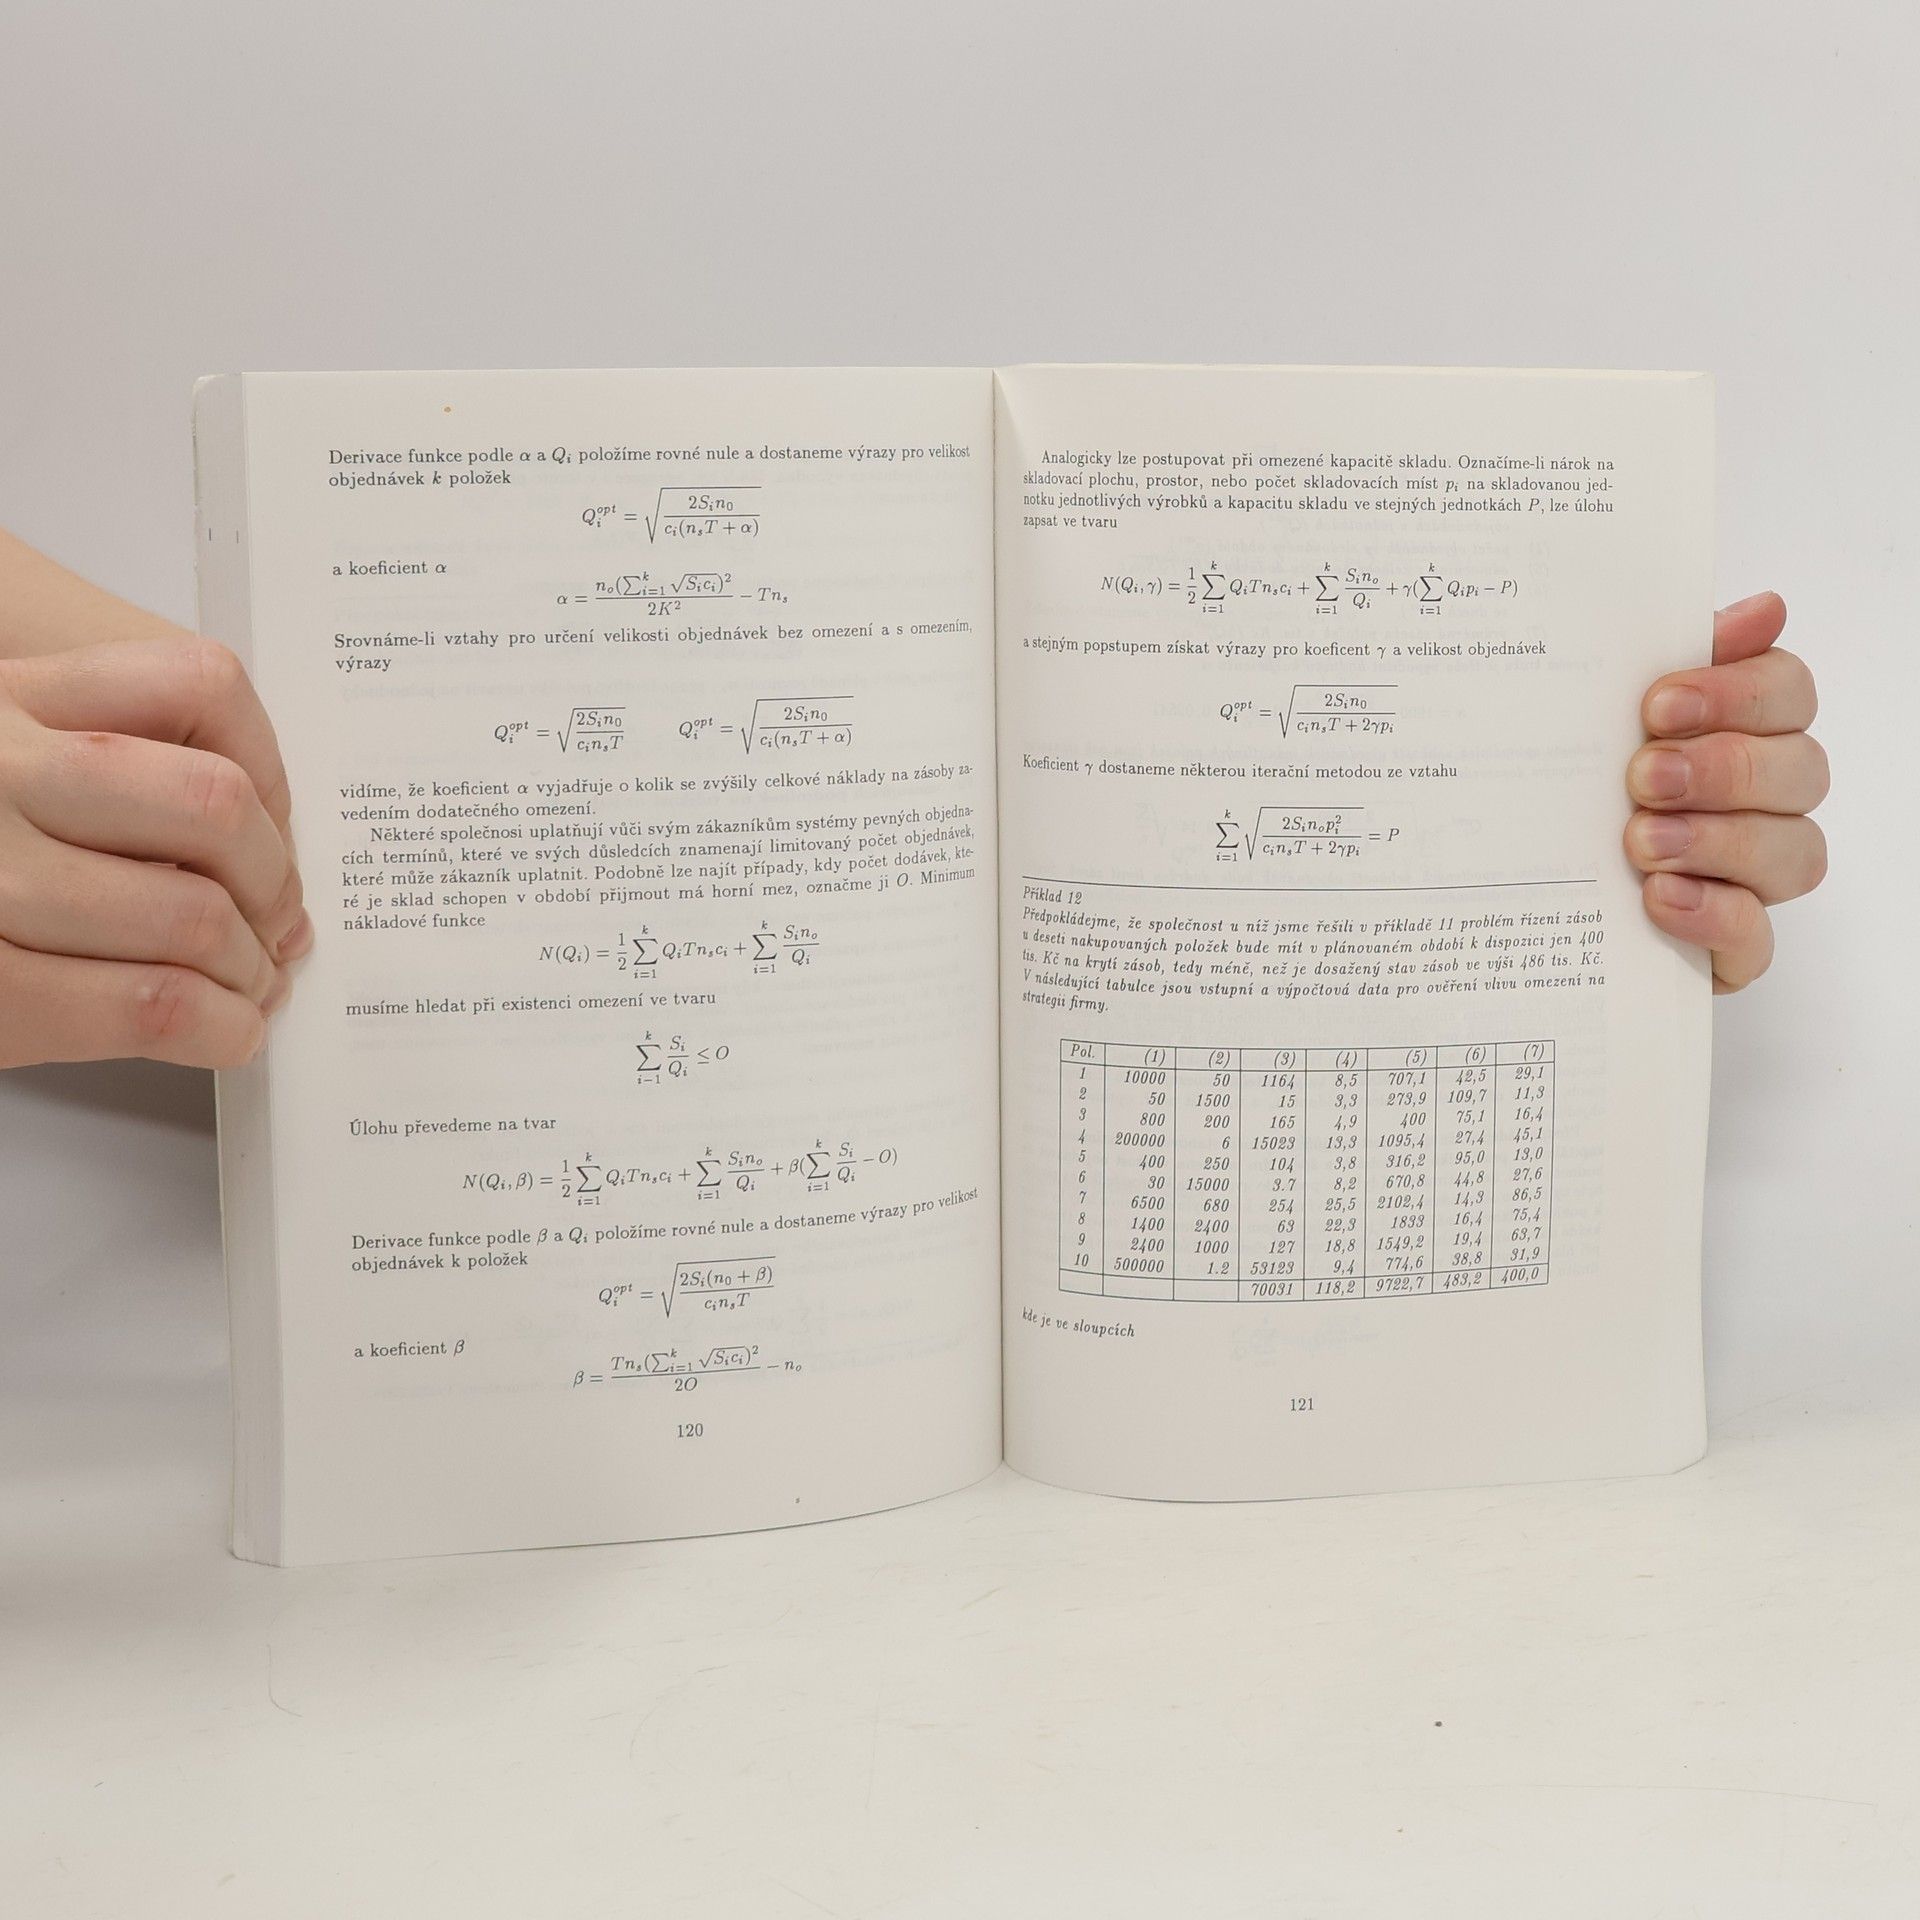 Derivace funkce podle α a Qᵢ položíme rovné nule a dostaneme výrazy pro velikost
objednávek k položek
Qᵢ^opt = √(2Sᵢn₀ / cᵢ(nₛT + α))
a koeficient α
α = n_o(∑_{i=1}^k √(Sᵢcᵢ))² / 2K² − Tnₛ
Srovnáme-li vztahy pro určení velikosti objednávek bez omezení a s omezením,
výrazy
Qᵢ^opt = √(2Sᵢn₀ / cᵢnₛT) Qᵢ^opt = √(2Sᵢn₀ / cᵢ(nₛT + α))
vidíme, že koeficient α vyjadřuje o kolik se zvýšily celkové náklady na zásoby za-
vedením dodatečného omezení.
Některé společnosi uplatňují vůči svým zákazníkům systémy pevných objedna-
cích termínů, které ve svých důsledcích znamenají limitovaný počet objednávek,
které může zákazník uplatnit. Podobně lze najít případy, kdy počet dodávek, kte-
ré je sklad schopen v období přijmout má horní mez, označme ji O. Minimum
nákladové funkce
N(Qᵢ) = 1/2 ∑_{i=1}^k QᵢTnₛcᵢ + ∑_{i=1}^k Sᵢn_o / Qᵢ
musíme hledat při existenci omezení ve tvaru
∑_{i−1}^k Sᵢ / Qᵢ ≤ O
Úlohu převedeme na tvar
N(Qᵢ, β) = 1/2 ∑_{i=1}^k QᵢTnₛcᵢ + ∑_{i=1}^k Sᵢn_o / Qᵢ + β(∑_{i=1}^k Sᵢ / Qᵢ − O)
Derivace funkce podle β a Qᵢ položíme rovné nule a dostaneme výrazy pro velikost
objednávek k položek
Qᵢ^opt = √(2Sᵢ(n₀ + β) / cᵢnₛT)
a koeficient β
β = Tnₛ(∑_{i=1}^k √(Sᵢcᵢ))² / 2O − n_o
120
Analogicky lze postupovat při omezené kapacitě skladu. Označíme-li nárok na
skladovací plochu, prostor, nebo počet skladovacích míst pᵢ na skladovanou jed-
notku jednotlivých výrobků a kapacitu skladu ve stejných jednotkách P, lze úlohu
zapsat ve tvaru
N(Qᵢ, γ) = 1/2 ∑_{i=1}^k QᵢTnₛcᵢ + ∑_{i=1}^k Sᵢn_o / Qᵢ + γ(∑_{i=1}^k Qᵢpᵢ − P)
a stejným popstupem získat výrazy pro koeficent γ a velikost objednávek
Qᵢ^opt = √(2Sᵢn₀ / cᵢnₛT + 2γpᵢ)
Koeficient γ dostaneme některou iterační metodou ze vztahu
∑_{i=1}^k √(2Sᵢn_opᵢ² / cᵢnₛT + 2γpᵢ) = P
Příklad 12
Předpokládejme, že společnost u níž jsme řešili v příkladě 11 problém řízení zásob
u deseti nakupovaných položek bude mít v plánovaném období k dispozici jen 400
tis. Kč na krytí zásob, tedy méně, než je dosažený stav zásob ve výši 486 tis. Kč.
V následující tabulce jsou vstupní a výpočtová data pro ověření vlivu omezení na
strategii firmy.
Pol. (1) (2) (3) (4) (5) (6) (7)
1 10000 50 1164 8,5 707,1 42,5 29,1
2 50 1500 15 3,3 273,9 109,7 11,3
3 800 200 165 4,9 400 75,1 16,4
4 200000 6 15023 13,3 1095,4 27,4 45,1
5 400 250 104 3,8 316,2 95,0 13,0
6 30 15000 3.7 8,2 670,8 44,8 27,6
7 6500 680 254 25,5 2102,4 14,3 86,5
8 1400 2400 63 22,3 1833 16,4 75,4
9 2400 1000 127 18,8 1549,2 19,4 63,7
10 500000 1.2 53123 9,4 774,6 38,8 31,9
70031 118,2 9722,7 483,2 400,0
kde je ve sloupcích
121